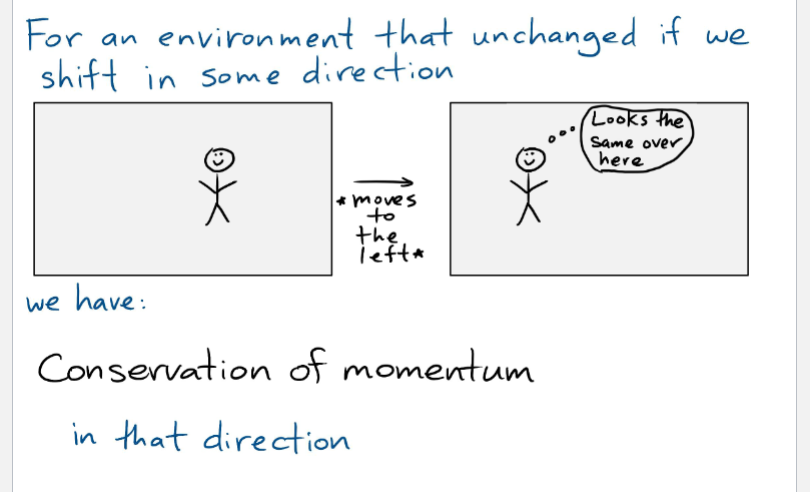 For an environment that unchanged if we
shift in some direction
Looks the
Same over
here
*moves
to
the
left*
we have:
Conservation of momentum
in that direction